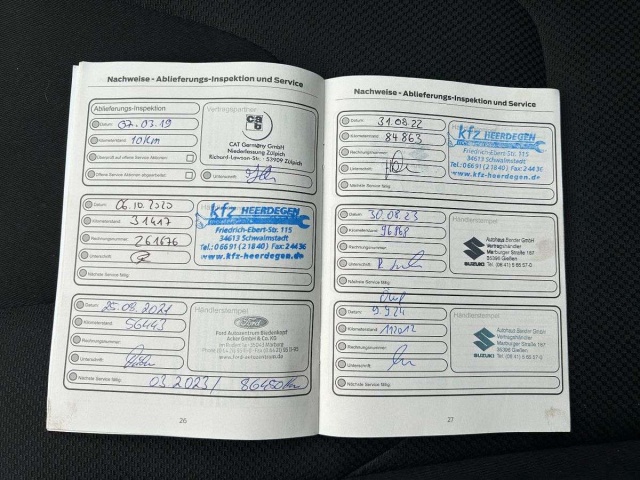 Nachweise - Ablieferungs-Inspektion und Service
Ablieferungs-Inspektion
Vertragspartner
Datum 07.03.19
Kilometerstand 10Km
CAT Germany GmbH
Niederlassung Zülpich
Richard-Lawson-Str. · 53909 Zülpich
Überprüft auf offene Service Aktionen
Offene Service Aktionen abgearbeitet
Unterschrift
Datum 06.10.2020
Kilometerstand 31417
Rechnungsnummer 261676
Unterschrift
Nächste Service fällig
kfz HEERDEGEN
Friedrich-Ebert-Str. 115
34613 Schwalmstadt
Tel.: 06691 (21840) Fax: 24436
www.kfz-heerdegen.de
Datum 25.08.2021
Kilometerstand 56443
Rechnungsnummer
Unterschrift
Nächste Service fällig 03.2023 / 86450km
Händlerstempel
Ford
Ford Autozentrum Biedenkopf
Acker GmbH & Co. KG
www.ford-autozentrum.de
26
Nachweise - Ablieferungs-Inspektion und Service
Datum 31.08.22
Kilometerstand 84863
Rechnungsnummer
Unterschrift
Nächste Service fällig
kfz HEERDEGEN
Friedrich-Ebert-Str. 115
34613 Schwalmstadt
Tel.: 06691 (21840) Fax: 24436
www.kfz-heerdegen.de
Datum 30.08.23
Kilometerstand 96168
Rechnungsnummer
Unterschrift
Nächste Service fällig
Händlerstempel
SUZUKI
Vertragshändler
Marburger Straße 187
35396 Gießen
Datum 9.9.24
Kilometerstand 112012
Rechnungsnummer
Unterschrift
Nächste Service fällig
Händlerstempel
SUZUKI
Vertragshändler
Marburger Straße 187
35396 Gießen
27